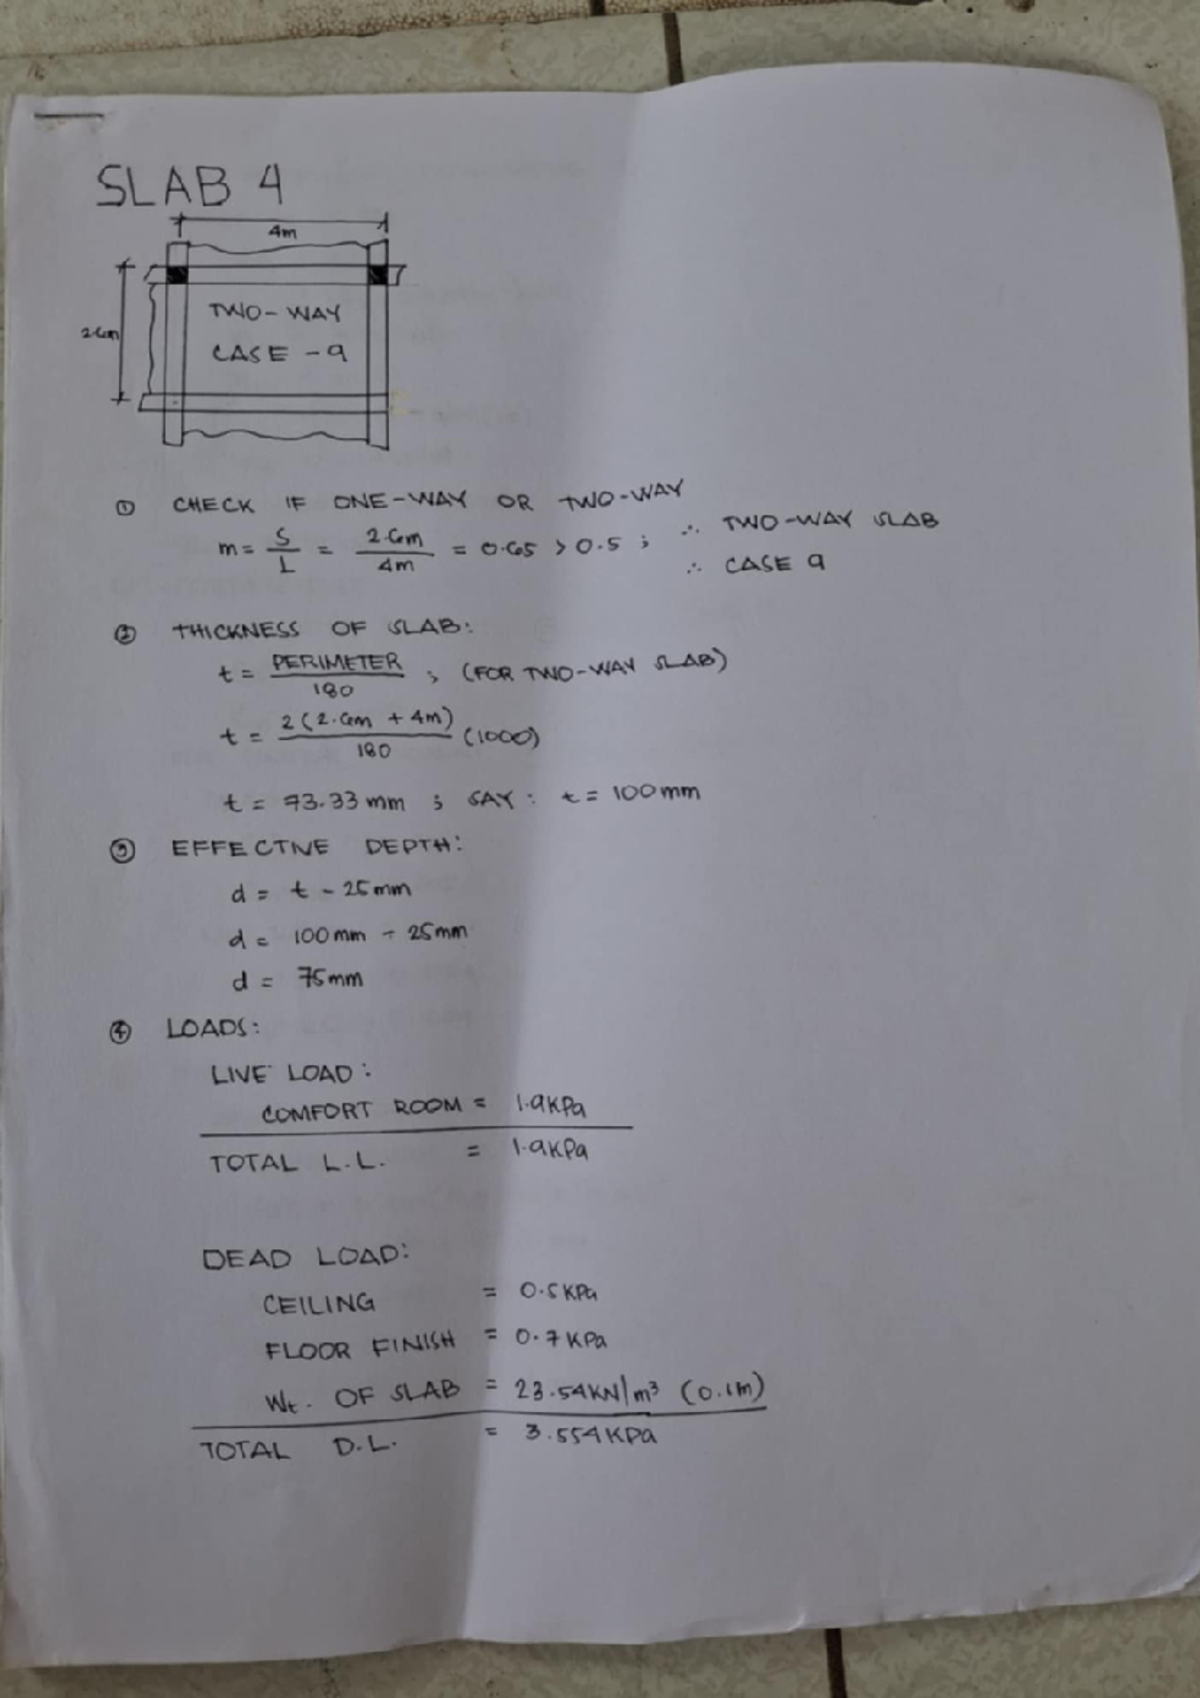 SLAB 4
4m
2.6m
TWO-WAY
CASE - 9
① CHECK IF ONE-WAY OR TWO-WAY
m = S/L = 2.6m/4m = 0.65 > 0.5 ; ∴ TWO-WAY SLAB
∴ CASE 9
② THICKNESS OF SLAB:
t = PERIMETER/180 ; (FOR TWO-WAY SLAB)
t = 2(2.6m + 4m)/180 (1000)
t = 73.33 mm ; SAY: t = 100mm
③ EFFECTIVE DEPTH:
d = t - 25mm
d = 100mm - 25mm
d = 75mm
④ LOADS:
LIVE LOAD:
COMFORT ROOM = 1.9KPa
TOTAL L.L. = 1.9KPa
DEAD LOAD:
CEILING = 0.5KPa
FLOOR FINISH = 0.7KPa
Wt. OF SLAB = 23.54KN/m³ (0.1m)
TOTAL D.L. = 3.554KPa